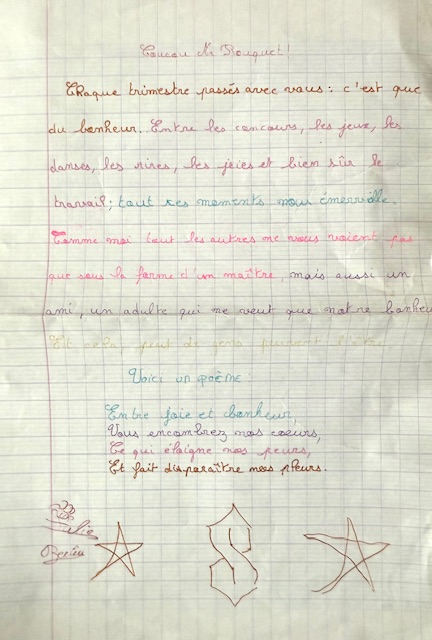 Coucou Mr Rouquet!
Chaque trimestre passés avec vous : c'est que
du bonheur. Entre les concours, les jeux, les
danses, les rires, les joies et bien sûr le
travail; tout ses moments nous émerveille.
Comme moi tout les autres ne vous voient pas
que sous la forme d'un maître, mais aussi un
ami, un adulte qui ne veut que notre bonheur
Et cela, peut de gens peuvent l'être.
Voici un poème
Entre joie et bonheur,
Vous encombrez nos coeurs,
Ce qui éloigne nos peurs,
Et fait disparaître nos pleurs.